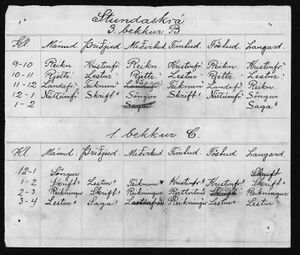 Stundaskrá
3. bekkur B
Kl. Mánud Þriðjud Miðvikud Fimtud Föstud Laugard.
9-10 Reikn Kristinfr Reikn Kristinfr Reikn Kristinfr
10-11 Rjettr Lestur Rjettr Lestur Rjettr Lestur
11-12 Landafr Teiknun Landafr Teiknun Landafr Reikn.
12-1 Náttúrufr Skrift Söngur Skrift Náttúrufr Söngur
1-2 Saga Saga
1. bekkur C.
Kl. Mánud Þriðjud Miðvikud Fimtud Föstud Laugard.
12-1 Söngur Skrift
1-2 Skrift Lestur Teiknun Kristinfr Kristinfr Skrift
2-3 Reikningur Reikningur Reikningur Rjettritun Skrift Reikningur
3-4 Lestur Saga Landafr Reikningur Lestur Lestur